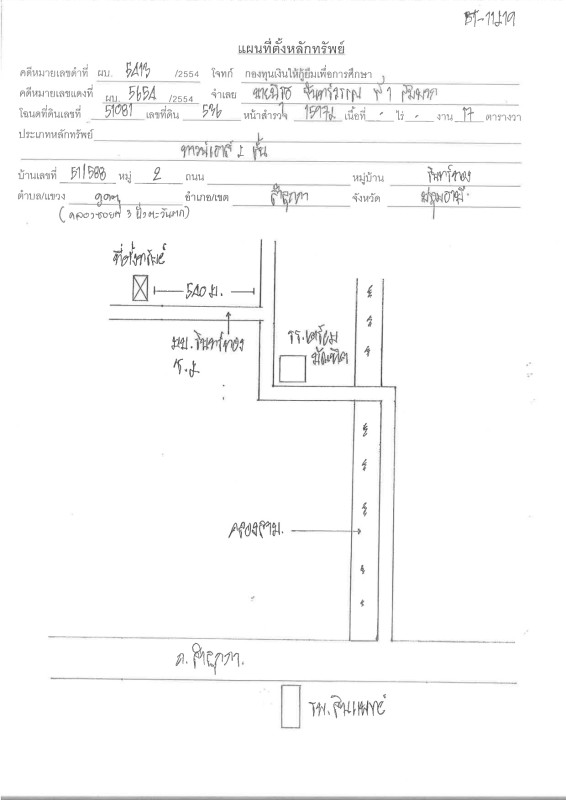 แผนที่ตั้งหลักทรัพย์
คดีหมายเลขดำที่ ผบ. 5413 /2554 โจทก์ กองทุนเงินให้กู้ยืมเพื่อการศึกษา
คดีหมายเลขแดงที่ ผบ. 5654 /2554 จำเลย
โฉนดที่ดินเลขที่ 51081 เลขที่ดิน 596 หน้าสำรวจ 15972 เนื้อที่ - ไร่ - งาน 17 ตารางวา
ประเภทหลักทรัพย์
ทาวน์เฮาส์ 2 ชั้น
บ้านเลขที่ 51/588 หมู่ 2 ถนน หมู่บ้าน รินทร์ทอง
ตำบล/แขวง คูคต อำเภอ/เขต ลำลูกกา จังหวัด ปทุมธานี
(คลองซอยที่ 3 ฝั่งตะวันตก)
ที่ตั้งทรัพย์
540 ม.
มบ. รินทร์ทอง
ซ.2
รร.เตรียม
บัณฑิต
คลองสาม.
ถ. ลำลูกกา.
รพ. สินแพทย์